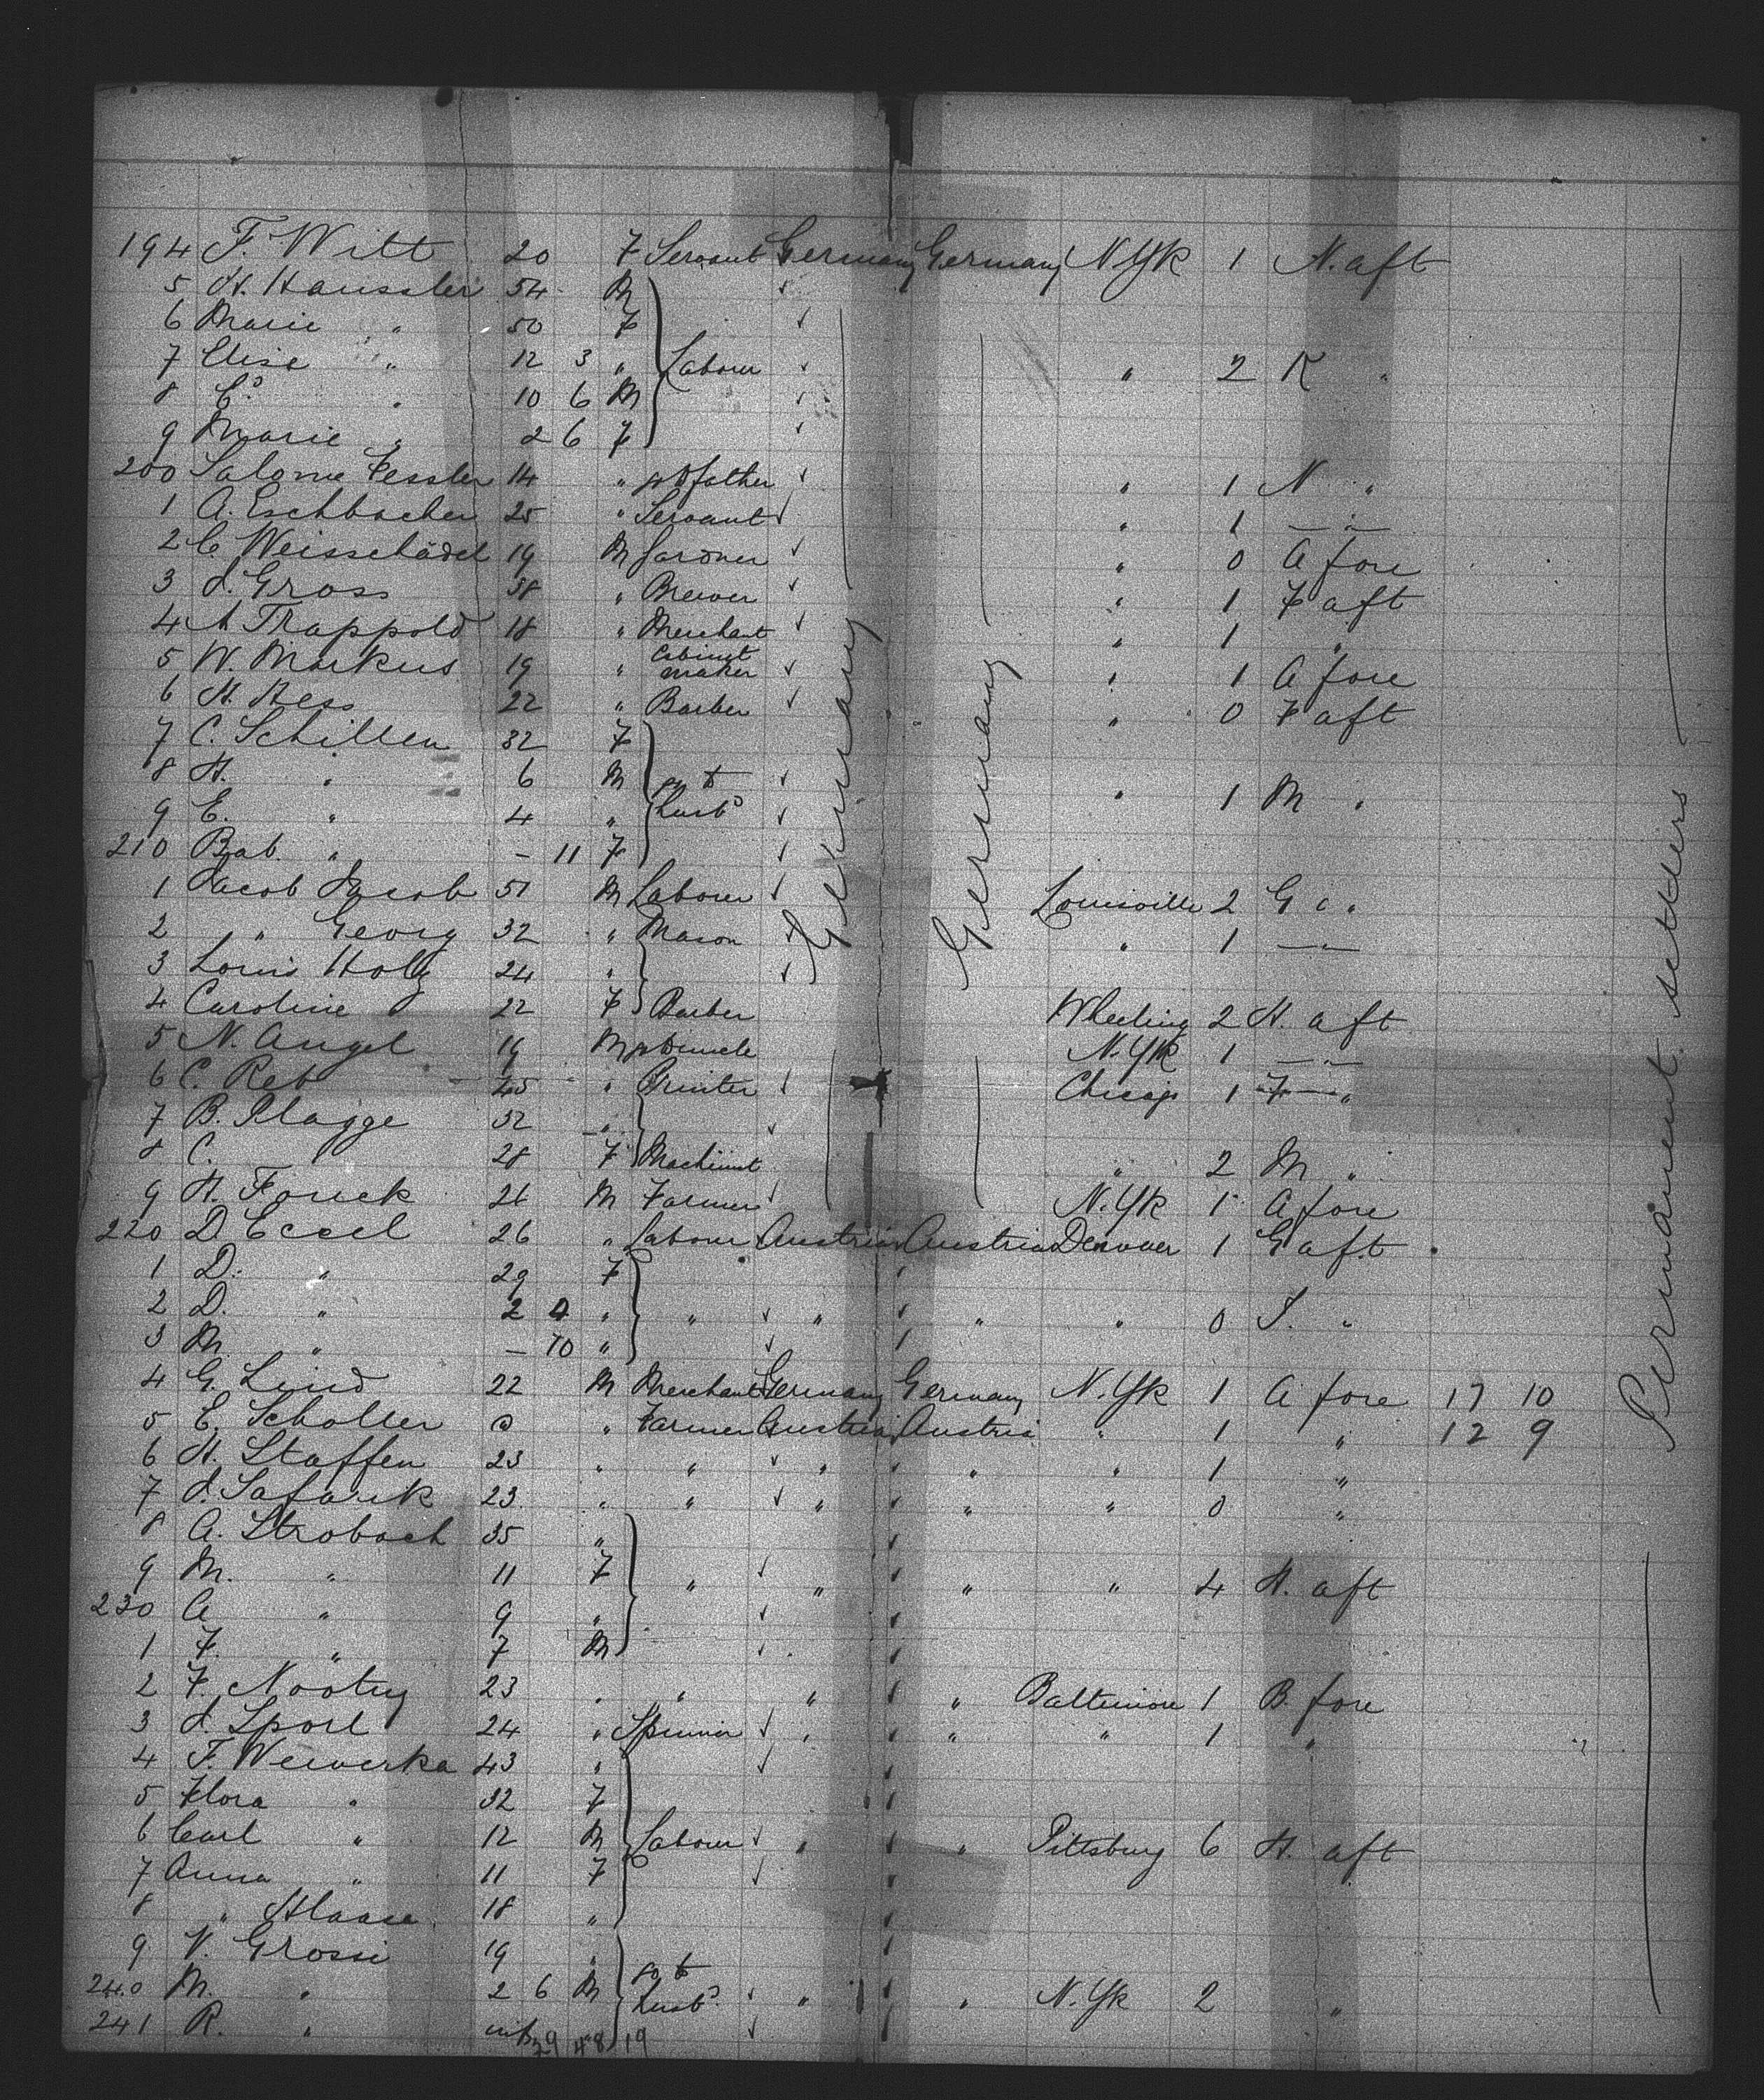 194 F. Witt 20 F Servant Germany Germany N.Yk 1 N. aft
5 H. Haussler 54 M
6 Marie " 50 F
7 Elise " 12 3 " Labour " 2 K "
8 C. " 10 6 M
9 Marie " 2 6 F
200 Salome Fessler 14 " go t father " 1 N "
1 A. Eschbacher 25 " Servant " 1 — " —
2 C. Weisschädel 19 M Gardner " 0 A fore
3 J. Gross 38 " Brewer " 1 F aft
4 A Trappold 18 " Merchant " 1 "
5 W. Markus 19 " Cabinet maker " 1 A fore
6 H. Hess 22 " Barber " 0 F aft
7 C. Schillen 32 F
8 H. " 6 M go t " 1 M "
9 E. " 4 " husbd
210 Bab. " - 11 F
1 Jacob Jacob 51 M Labour Louisville 2 G "
2 " Georg 32 " Mason " 1 — " —
3 Louis Holz 24 "
4 Caroline 22 F Barber Wheeling 2 H. aft
5 N. Angel 19 M go t uncle N.Yk 1 — " —
6 C. Reb 45 " Printer Chicago 1 F — "
7 B. Plagge 32 "
8 C. 28 F Machinist " 2 M "
9 H. Fouck 21 M Farmer N.Yk 1 A fore
220 D. Eccel 26 " Labour Austria Austria Denver 1 G aft
1 D. " 29 F
2 D. " 2 4 " " " " " 0 J. "
3 M. " - 10 "
4 G. Lind 22 M Merchant Germany Germany N.Yk 1 A fore 17 10
5 E. Scholler " Farmer Austria Austria " 1 " 12 9
6 H. Staffen 23 " " " " " 1 "
7 J. Safarik 23 " " " " " 0 "
8 A. Strobach 35 "
9 M. " 11 F " " " " 4 H. aft
230 A " 9 "
1 F. " 7 M
2 F. Nootny 23 " " " " Baltimore 1 B. fore
3 J. Sporl 24 " Spinner " " " 1 "
4 F. Weiverka 43 "
5 Flora " 32 F
6 Carl " 12 M Labour " " Pittsburg 6 H. aft
7 Anna " 11 F
8 " Haase 18 "
9 V. Grossi 19 "
240 M. " 2 6 M go t husbd " " N.Yk 2 "
241 R. " inf
29 48 19
Germany
Germany
Permanent settlers